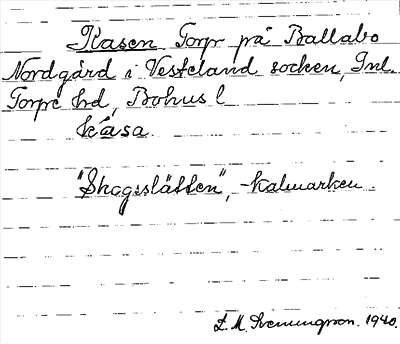 Kasen Torp på Ballabo
Nordgård i Vesteland socken, Inl.
Torpe hd, Bohus l
kása
"Skogsslätten", -kalmarken.
L. M. Svenungsson. 1940.